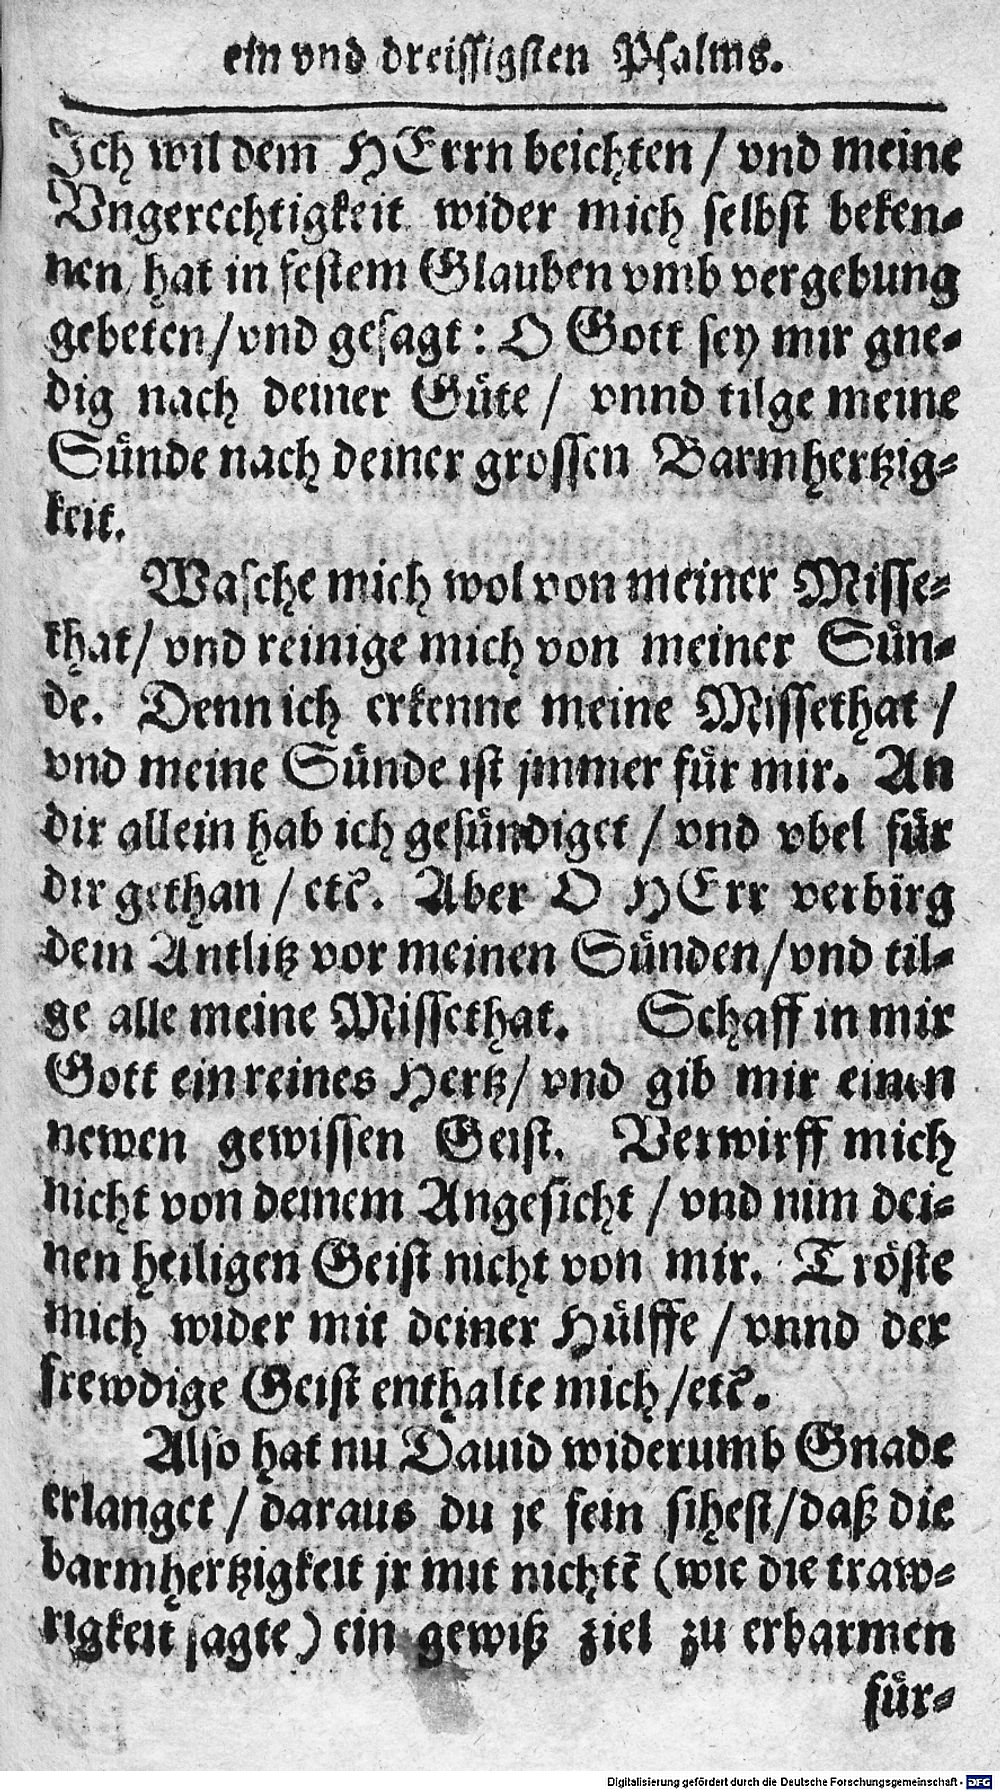 ein vnd dreissigsten Psalms.
Ich wil dem HErrn beichten / vnd meine
Vngerechtigkeit wider mich selbst beken-
nen / hat in festem Glauben vmb vergebung
gebeten / vnd gesagt: O Gott sey mir gne-
dig nach deiner Güte / vnnd tilge meine
Sünde nach deiner grossen Barmhertzig-
keit.
Wasche mich wol von meiner Misse-
that / vnd reinige mich von meiner Sün-
de. Denn ich erkenne meine Missethat /
vnd meine Sünde ist jmmer für mir. An
dir allein hab ich gesündiget / vnd vbel für
dir gethan / etc. Aber O HErr verbirg
dein Antlitz vor meinen Sünden / vnd til-
ge alle meine Missethat. Schaff in mir
Gott ein reines Hertz / vnd gib mir einen
newen gewissen Geist. Verwirff mich
nicht von deinem Angesicht / vnd nim dei-
nen heiligen Geist nicht von mir. Tröste
mich wider mit deiner Hülffe / vnnd der
frewdige Geist enthalte mich / etc.
Also hat nu Dauid widerumb Gnade
erlanget / daraus du je fein sihest / daß die
barmhertzigkeit jr mit nichtẽ (wie die traw-
rigkeit sagte) ein gewiß ziel zu erbarmen
für-
Digitalisierung gefördert durch die Deutsche Forschungsgemeinschaft - DFG